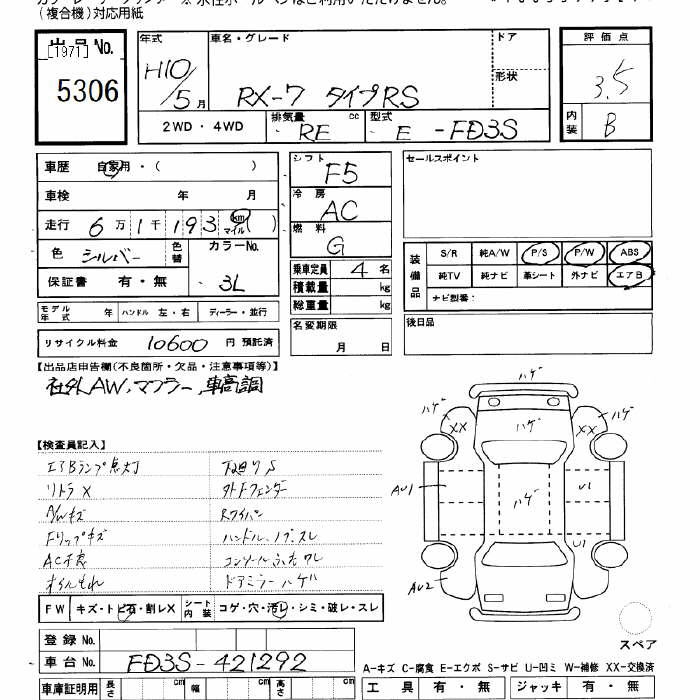 (複合機)対応用紙
出品 No. 年式 車名・グレード ドア 評価点
[1971]
5306 H10/5月 RX-7 タイプRS 形状 3.5
2WD・4WD 排気量 RE cc 型式 E-FD3S 内装 B
車歴 自家用・( ) シフト F5 セールスポイント
車検 年 月 冷房 AC
走行 6万1千193 km マイル ( ) 燃料 G
色 シルバー 色替 カラーNo. 3L
装備品 S/R 純A/W P/S P/W ABS
純TV 純ナビ 革シート 外ナビ エアB
ナビ型番:
保証書 有・無 乗車定員 4名
積載量 kg
総重量 kg
モデル年式 年 ハンドル 左・右 ディーラー・並行
名変期限 月 日 後日品
リサイクル料金 10600 円 預託済
【出品店申告欄(不良箇所・欠品・注意事項等)】
社外AW、マフラー、車高調
【検査員記入】
エアBランプ点灯 下廻りS
リトラX タトFフェンダー
A/Wキズ Rワイパー
Fリップキズ ハンドル、ノブスレ
AC不良 コンソールふたワレ
オイルもれ ドアミラーハゲ
ハゲ
ハゲ XX ハゲ XX ハゲ
AU1 ハゲ U1
U1
AU2
FW キズ・トビ石・割レX シート内装 コゲ・穴・汚レ・シミ・破レ・スレ
スペア
登録 No.
車台 No. FD3S-421292
A-キズ C-腐食 E-エクボ S-サビ U-凹ミ W-補修 XX-交換済
車庫証明用 長さ cm 幅 cm 高さ cm 工具 有・無 ジャッキ 有・無